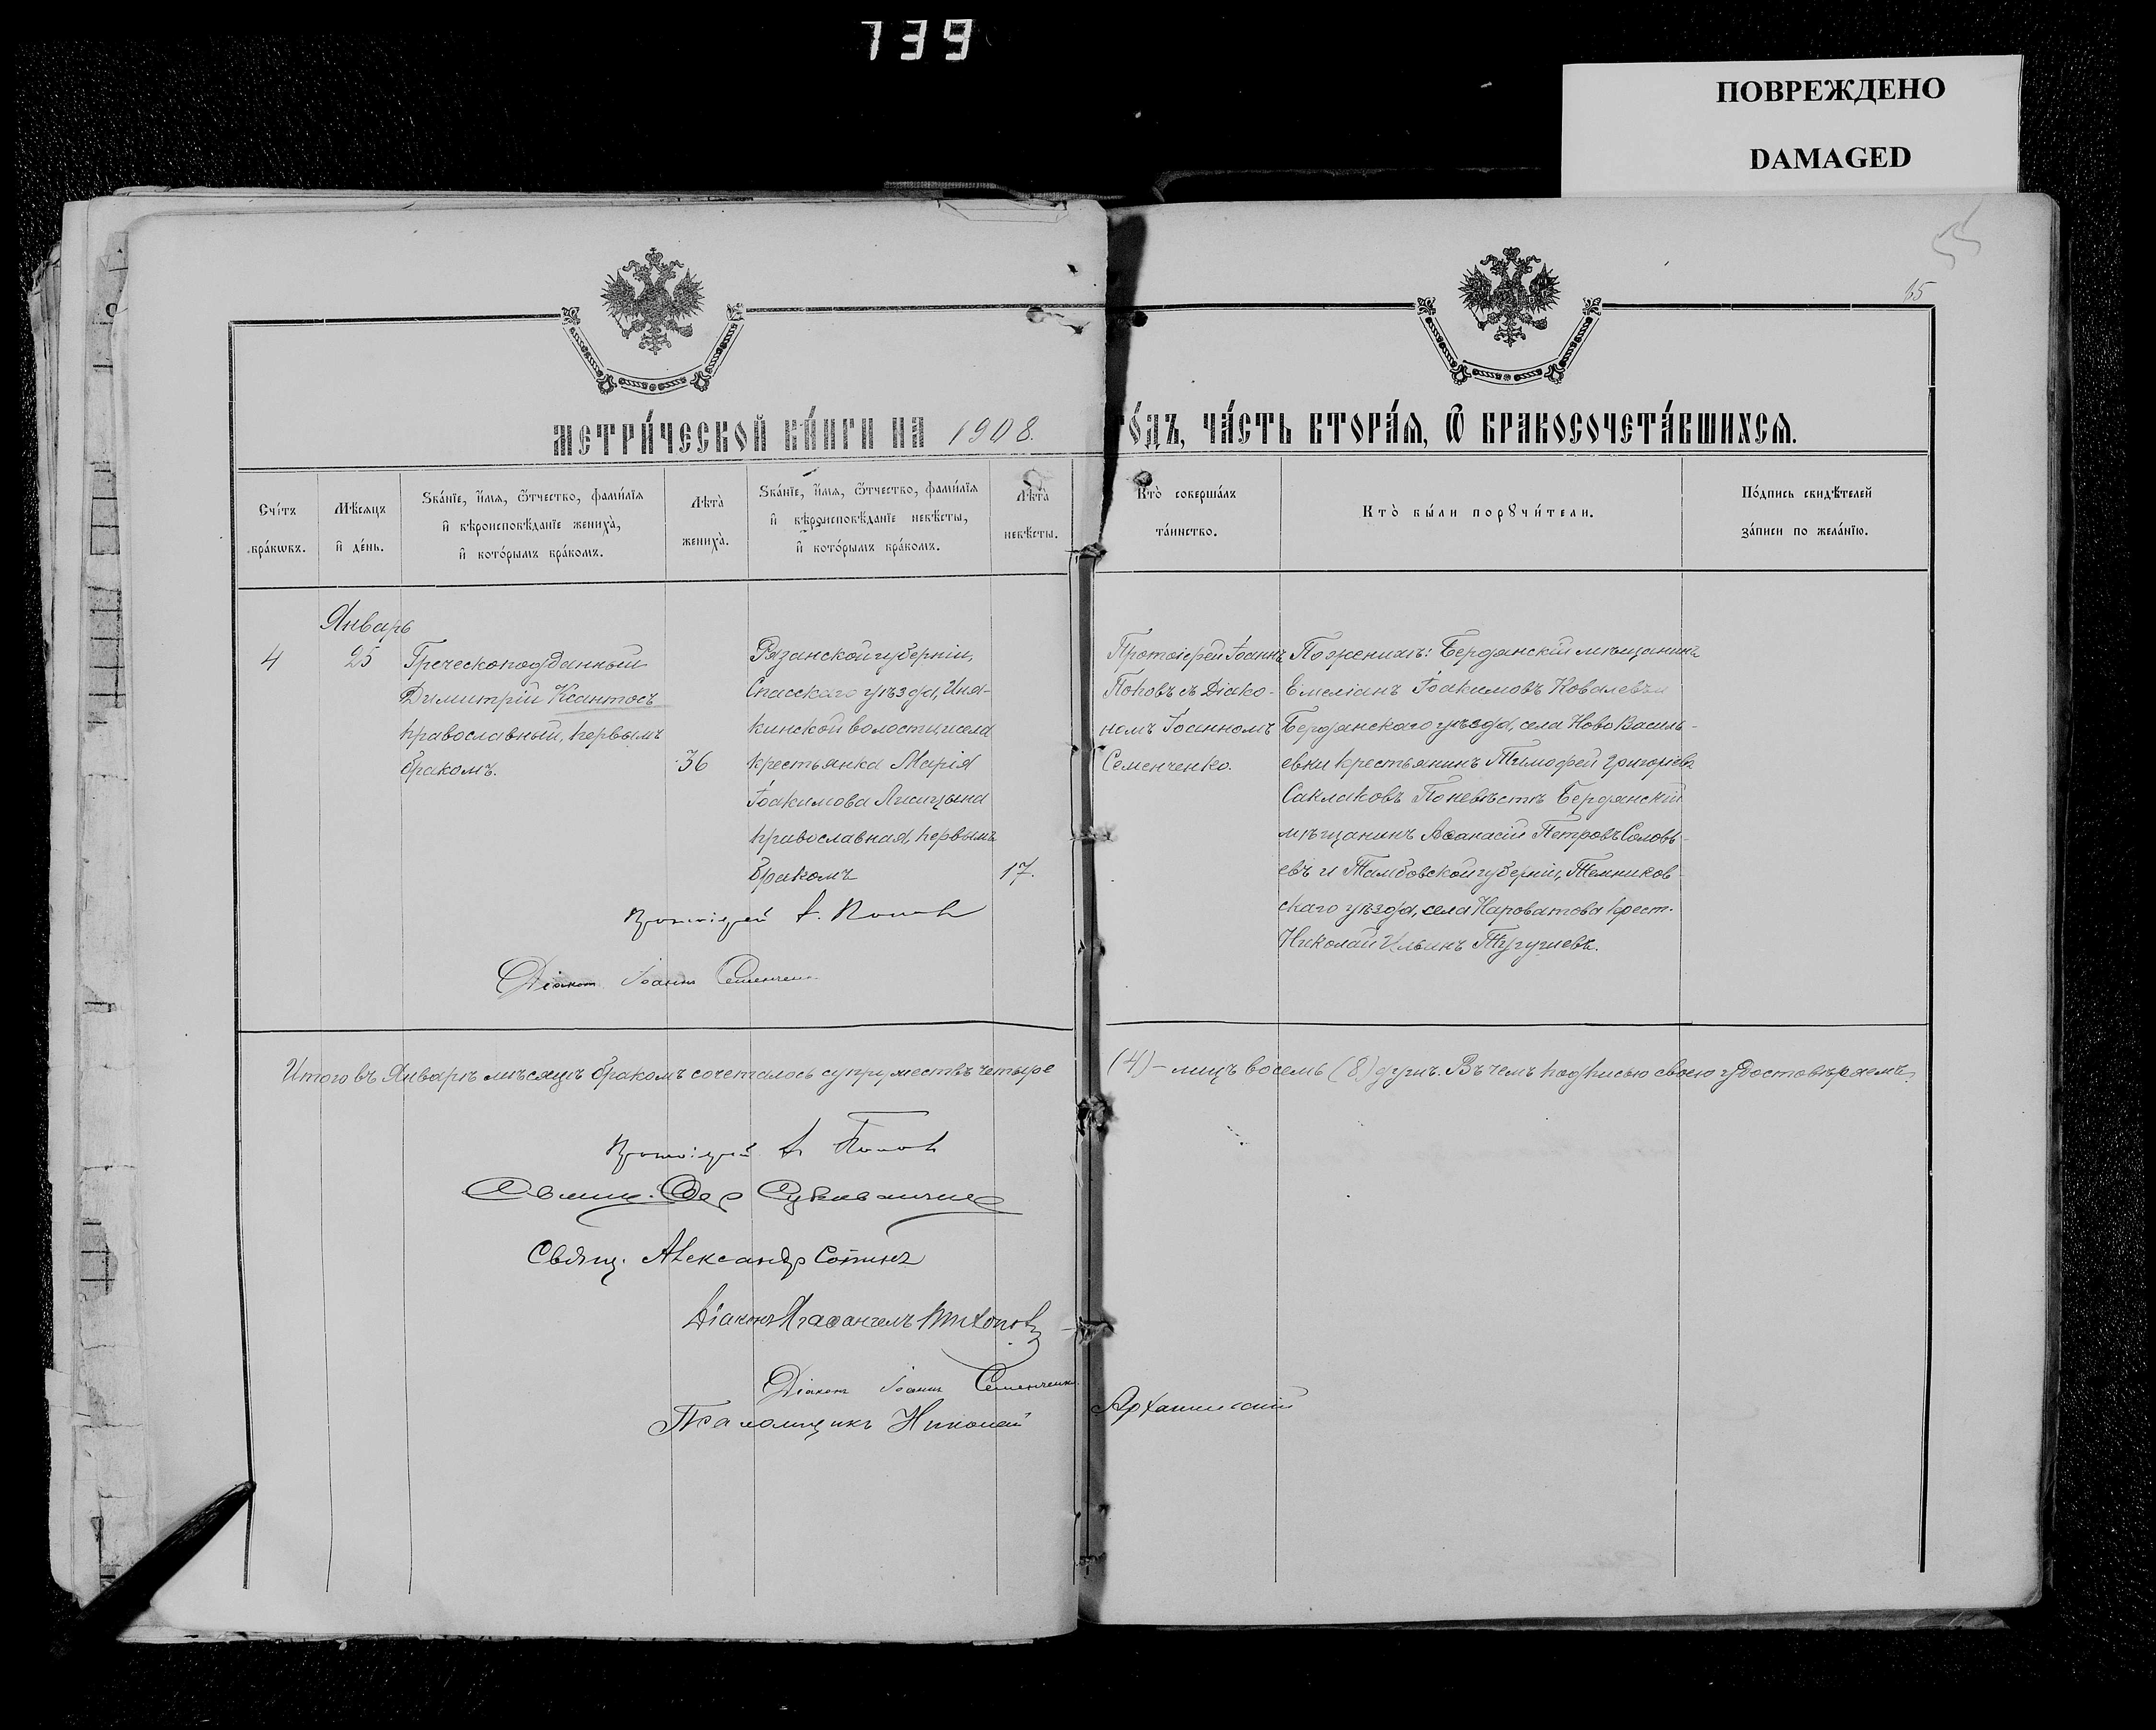 139
ПОВРЕЖДЕНО
DAMAGED
55
65
МЕТРИ́ЧЕСКОЙ КНИ́ГИ НА 1908. ГО́ДЪ, ЧА́СТЬ ВТОРА́Я, Ѽ БРАКОСОЧЕТА́ВШИХСЯ.
Сче́тъ бра́кѡвъ.
Мѣ́сяцъ и҆ де́нь.
Ѕва́нїе, и҆́мя, ѻ҆́тчество, фами́лїя и҆ вѣроисповѣ́данїе жениха̀, и҆ кото́рымъ бра́комъ.
Лѣ́та̀ жениха̀.
Ѕва́нїе, и҆́мя, ѻ҆́тчество, фами́лїя и҆ вѣроисповѣ́данїе невѣ́сты, и҆ кото́рымъ бра́комъ.
Лѣ́та̀ невѣ́сты.
Кто̀ соверша́лъ та́инство.
Кто̀ бы́ли порꙋчи́тели.
По́дпись свидѣ́телей за́писи по жела́нїю.
Январь
4
25
Греческоподданный
Димитрій Ксантосъ
православный, первымъ
бракомъ.
36
Рязанской губерніи,
Спасскаго уѣзда, Иня-
кинской волости, и села
крестьянка Марія
Іоакимова Лисицына
православная, первымъ
бракомъ
17.
Протоіерей Іоаннъ
Поповъ съ Діако-
номъ Іоанномъ
Семенченко.
По женихѣ: Бердянскій мѣщанинъ
Емеліанъ Іоакимовъ Ковалевъ и
Бердянскаго уѣзда, села Ново Василь-
евки крестьянинъ Тимофей Григоріевъ
Саклаковъ По невѣстѣ Бердянскій
мѣщанинъ Аѳанасій Петровъ Соловь-
евъ и Тамбовской губерніи, Темников-
скаго уѣзда, села Нароватова крест.
Николай Ильинъ Тугушевъ.
Протоіерей І. Поповъ
Діаконъ Іоаннъ Семенченко
Итого въ Январѣ мѣсяцѣ бракомъ сочеталось супружествъ четыре (4) – лицъ восемь (8) душъ. Въ чемъ подписью своею удостовѣряемъ.
Протоіерей І. Поповъ
Свящ.
Свящ. Александр Сопинъ
Діаконъ Агаѳангелъ
Діаконъ Іоаннъ Семенченко
Псаломщикъ Николай Архангельскій